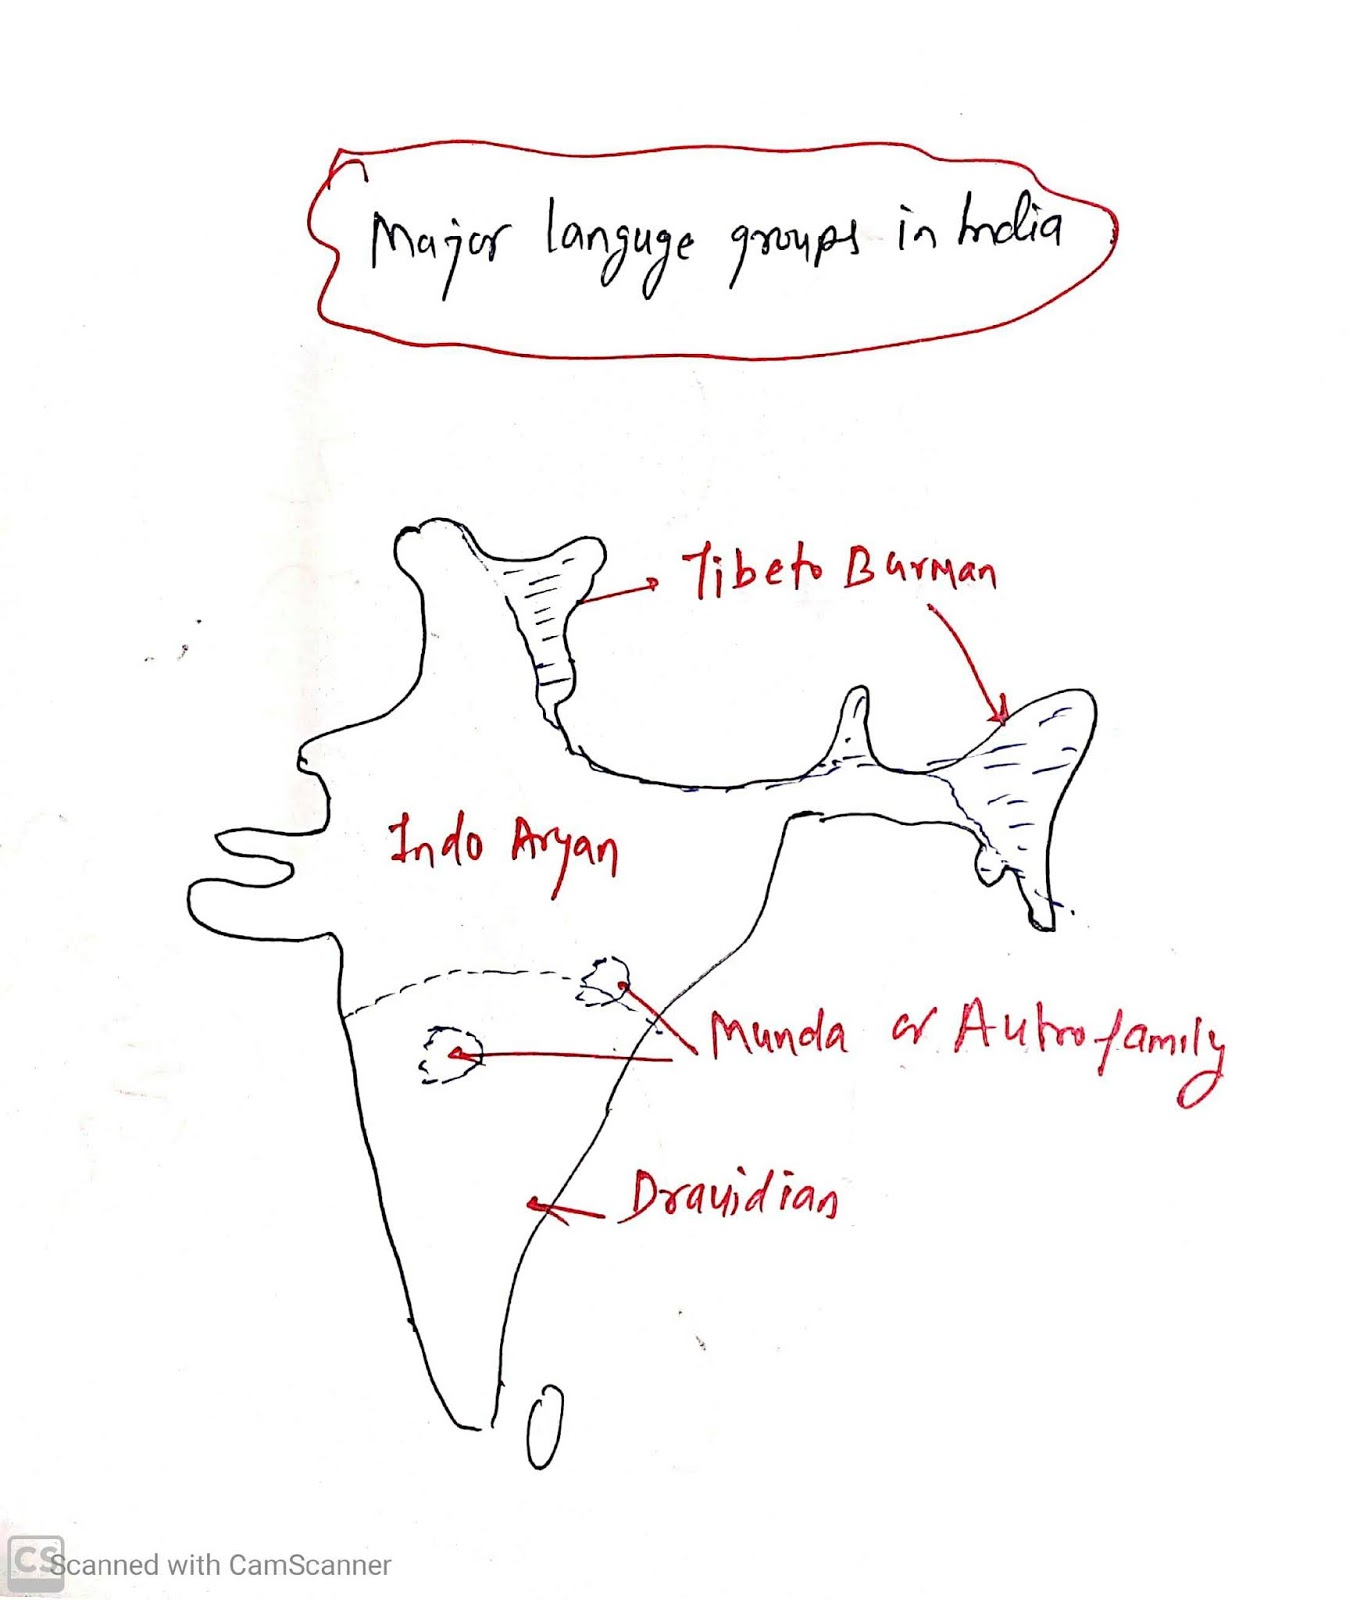 Major languge groups in India
Tibeto Burman
Indo Aryan
Munda or Autro family
Dravidian
CS Scanned with CamScanner